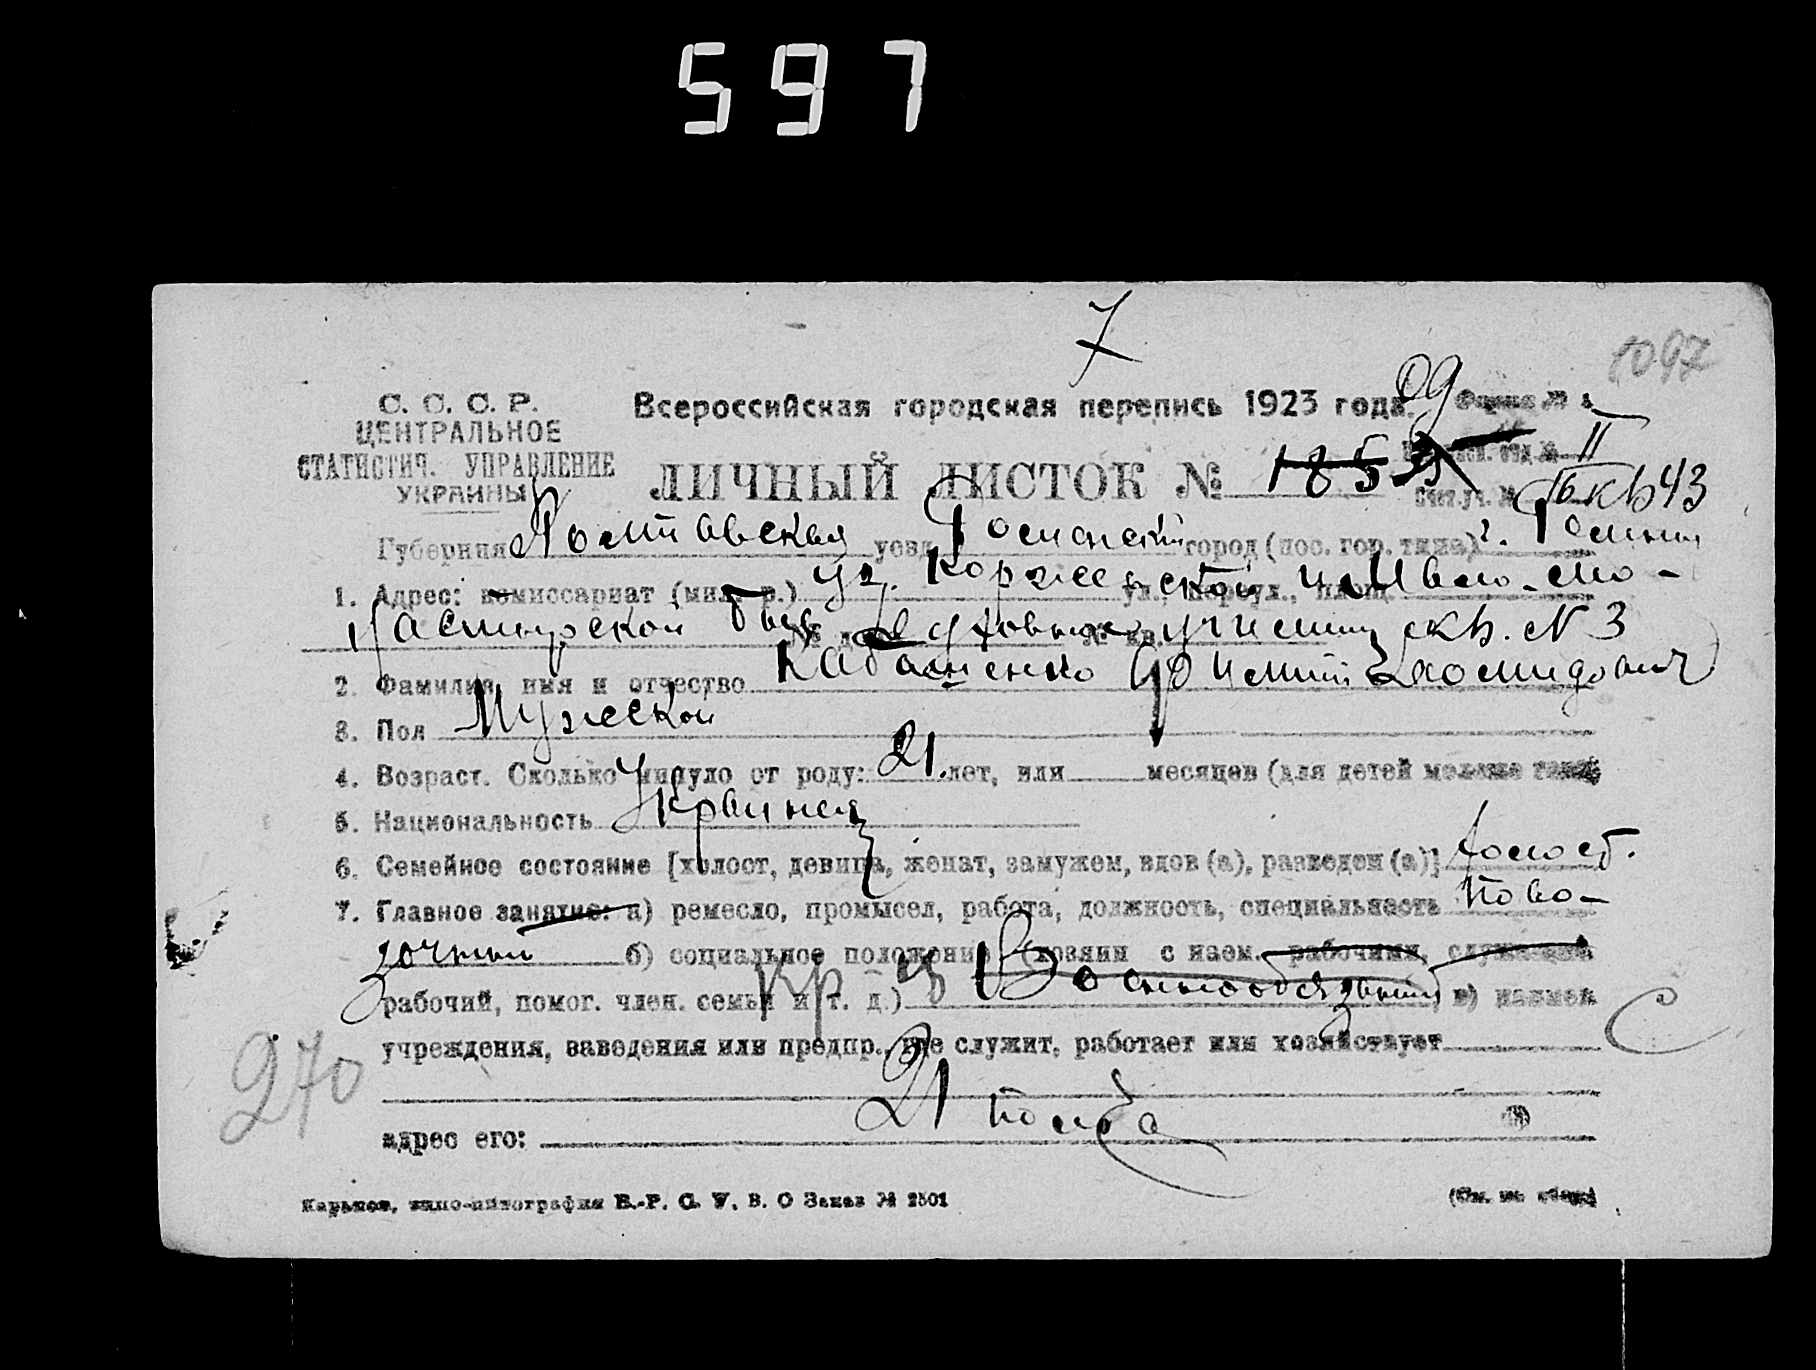 597
7
1097
С. С. С. Р.
ЦЕНТРАЛЬНОЕ
СТАТИСТИЧ. УПРАВЛЕНИЕ
УКРАИНЫ
Всероссийская городская перепись 1923 года.
09
Форма №
II
ЛИЧНЫЙ ЛИСТОК № 185
кв 43
Губерния Полтавская уезд Роменский город (пос. гор. типа) г. Ромны
1. Адрес: комиссариат (мил. р.) уг. Коржевской и
ул., переул., площ.
настырской быв духовн. училищ кв. № 3
2. Фамилия, имя и отчество Кабашенко
3. Пол Мужской
4. Возраст. Сколько минуло от роду: 21 лет, или месяцев (для детей моложе года)
5. Национальность Украинец
6. Семейное состояние [холост, девица, женат, замужем, вдов (а), разведен (а)] холост.
7. Главное занятие: а) ремесло, промысел, работа, должность, специальность Пово-
зочный б) социальное положение (хозяин с наем. рабочими, служащий
рабочий, помог. член. семьи и т. д.) Кр-ц Военнообязанный в) наимен
учреждения, заведения или предпр., где служит, работает или хозяйствует
С
270
21 полка
адрес его:
Харьков, типо-литография В.-Р. С. У. В. О Заказ № 2501